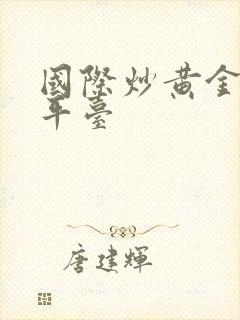 國際炒黃金
平臺
唐建輝